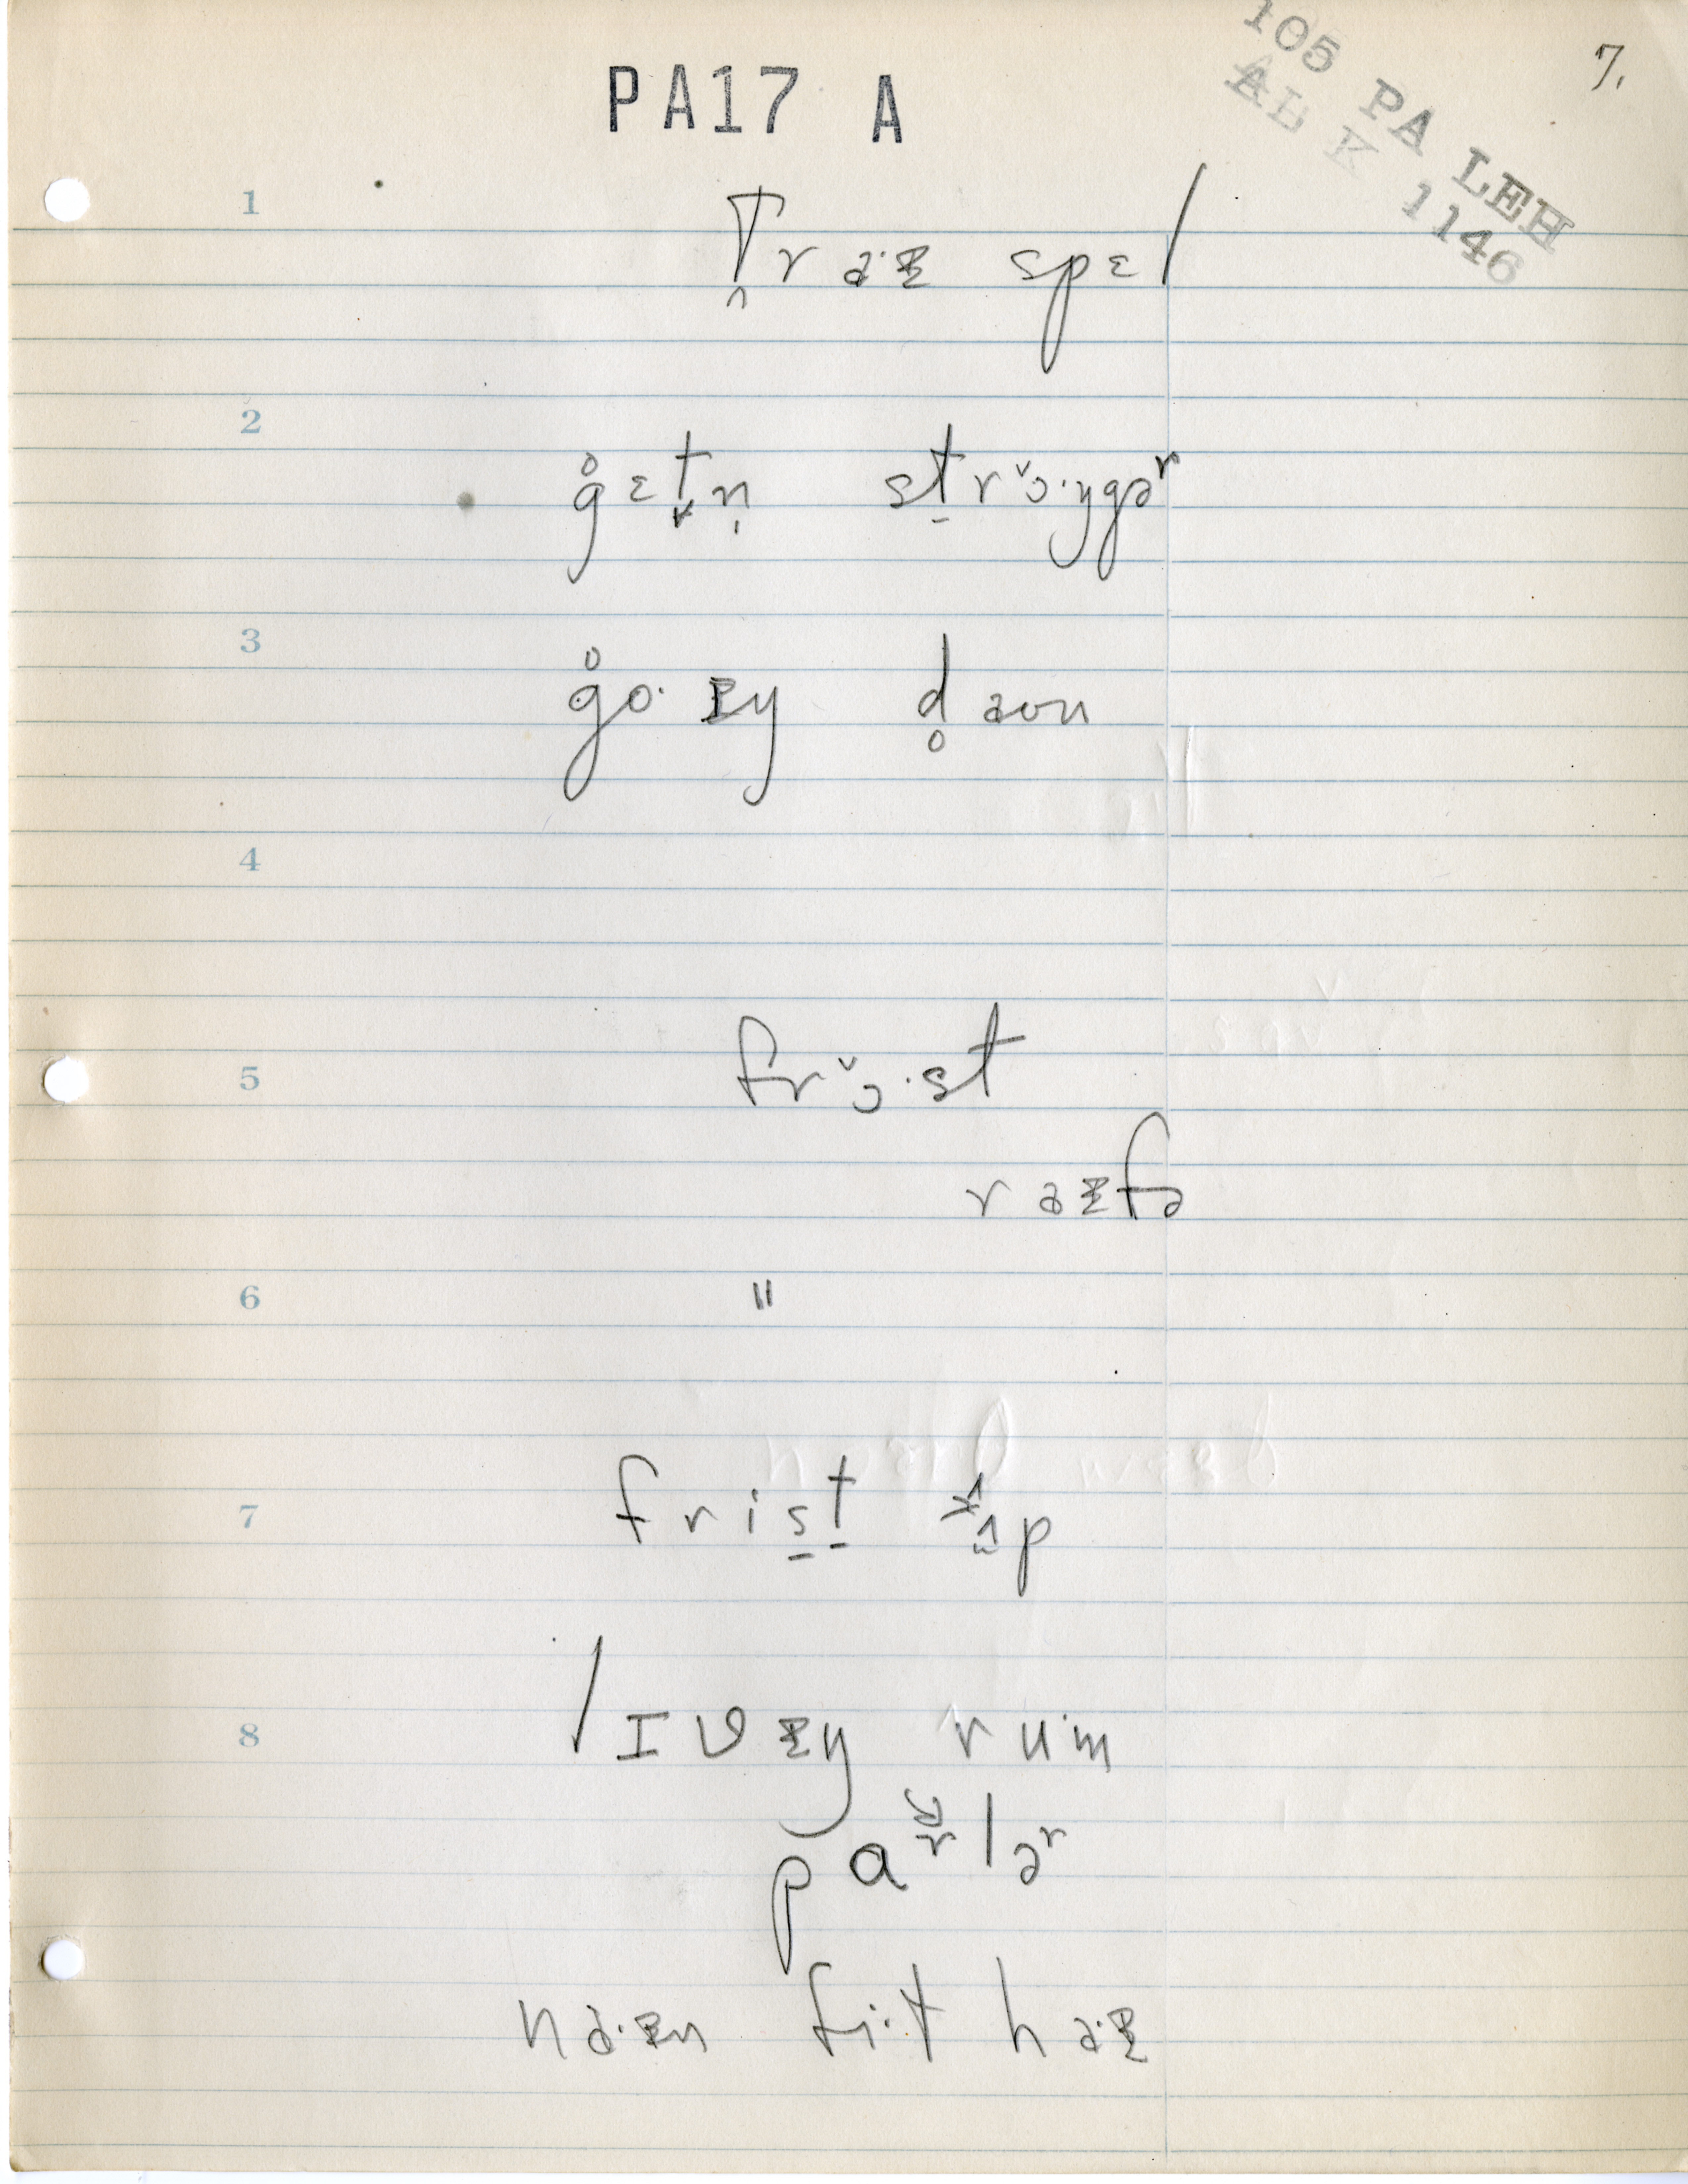 7.
105 PA LEH
AL K 1146
PA17 A
1 t̯raˑɪ spɛl
2 g̊ɛt̬n̩ st̠rɔ̌ˑŋgəʳ
3 g̊oˑɪŋ d̥aʊn
4
5 frɔ̌ˑst
raɪfə
6 "
7 fris̠t̠ ʌp
8 lɪvɪŋ ruˑm
pɑʳləʳ
naˑɪn fiˑt haˑɪ